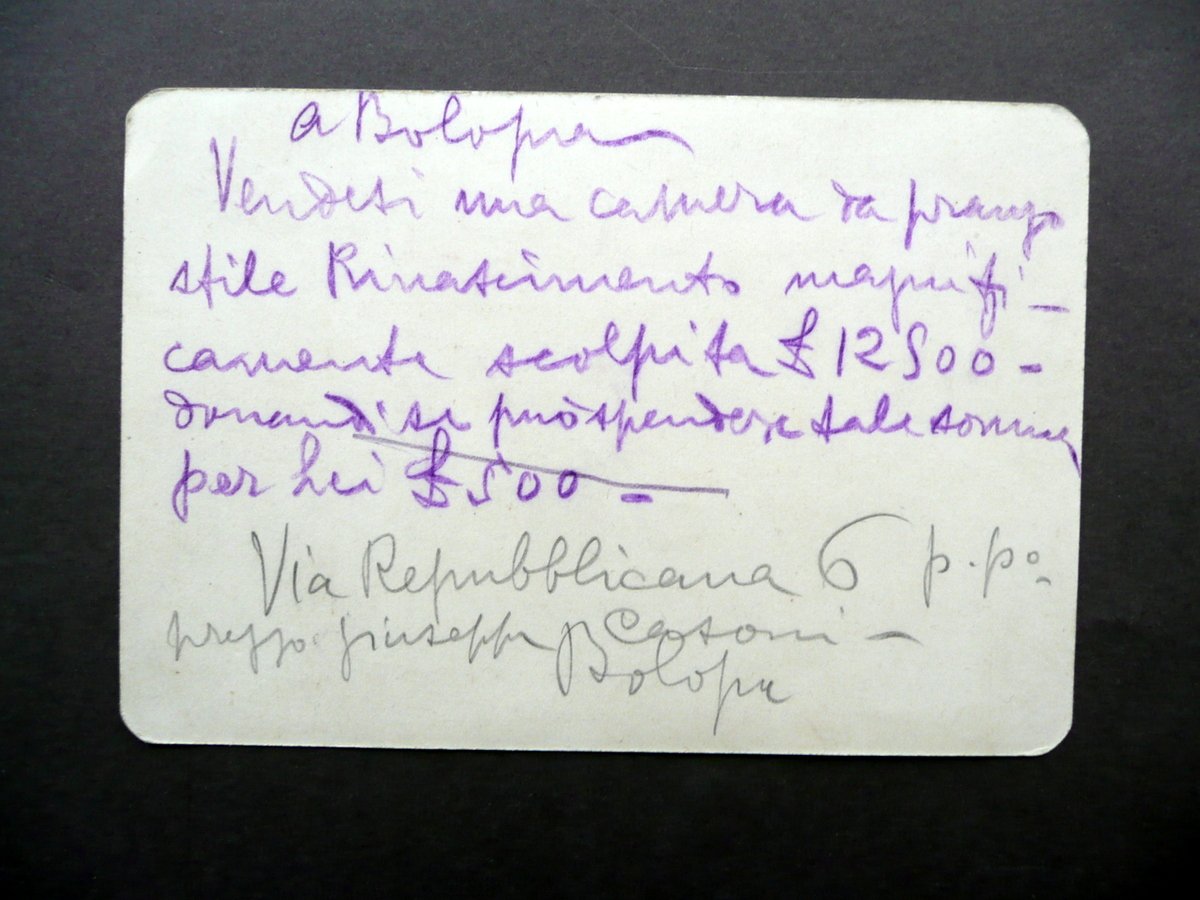 a Bologna
Vendesi una camera da pranzo
stile Rinascimento magnifi-
camente scolpita £ 12500-
se può spendere tale somma
per Lei £ 500-
Via Repubblicana 6 p. po-
presso Giuseppe Casoni-
Bologna